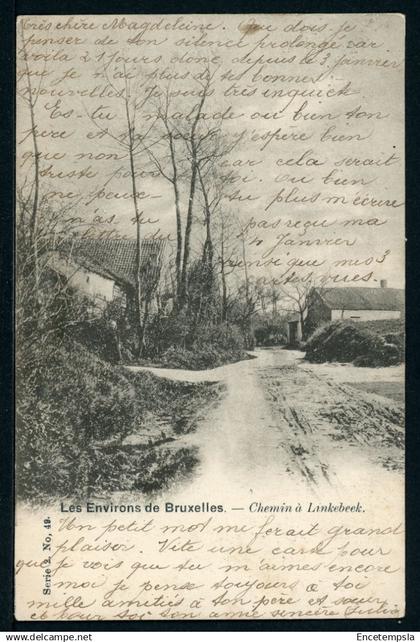 Très chère Magdeleine. Que dois je
penser de ton silence prolongé car
voilà 21 jours donc, depuis le 3 janvier
que je n'ai plus de tes bonnes
nouvelles. Je suis très inquiète
Es-tu malade ou bien ton
père et ta soeur j'espère bien
que non car cela serait
triste pour toi. Ou bien
ne peux-tu plus m'écrire
n'as tu pas reçu ma
lettre du 4 Janvier
ainsi que mes 3
cartes vues.
Les Environs de Bruxelles. — Chemin à Linkebeek.
Serie 2. No. 49.
Un petit mot me ferait grand
plaisir. Vite une carte pour
que je vois que tu m'aimes encore
moi je pense toujours à toi
mille amitiés à ton père et soeur
et pour toi ton amie sincère
© Entachempsia - www.delcampe.net